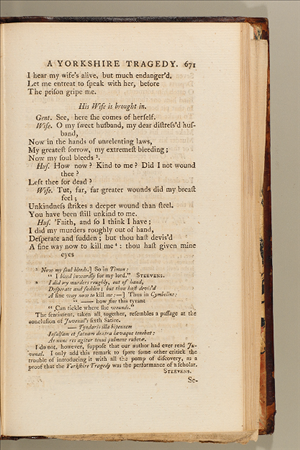 A YORKSHIRE TRAGEDY. 671
I hear my wife's alive, but much endanger'd.
Let me entreat to speak with her, before
The prison gripe me.
His Wife is brought in.
Gent. See, here she comes of herself.
Wife. O my sweet husband, my dear distress'd hus-
band,
Now in the hands of unrelenting laws,
My greatest sorrow, my extremest bleeding;
Now my soul bleeds ³.
Hus. How now? Kind to me? Did I not wound
thee?
Left thee for dead?
Wife. Tut, far, far greater wounds did my breast
feel;
Unkindness strikes a deeper wound than steel.
You have been still unkind to me.
Hus. 'Faith, and so I think I have;
I did my murders roughly out of hand,
Desperate and sudden; but thou hast devis'd
A fine way now to kill me ⁴: thou hast given mine
eyes
³ Now my soul bleeds.] So in Timon:
"I bleed inwardly for my lord." STEEVENS.
⁴ I did my murders roughly, out of hand,
Desperate and sudden; but thou hast devis'd
A fine way now to kill me:—] Thus in Cymbeline:
"—— how fine this tyrant
"Can tickle where she wounds."
The sentiment, taken all together, resembles a passage at the
conclusion of Juvenal's sixth Satire.
—— Tyndaris illa bipennem
Insulsam et fatuam dextra lævaque tenebat:
At nunc res agitur tenui pulmone rubetæ.
I do not, however, suppose that our author had ever read Ju-
venal. I only add this remark to spare some other critick the
trouble of introducing it with all the pomp of discovery, as a
proof that the Yorkshire Tragedy was the performance of a scholar.
STEEVENS.